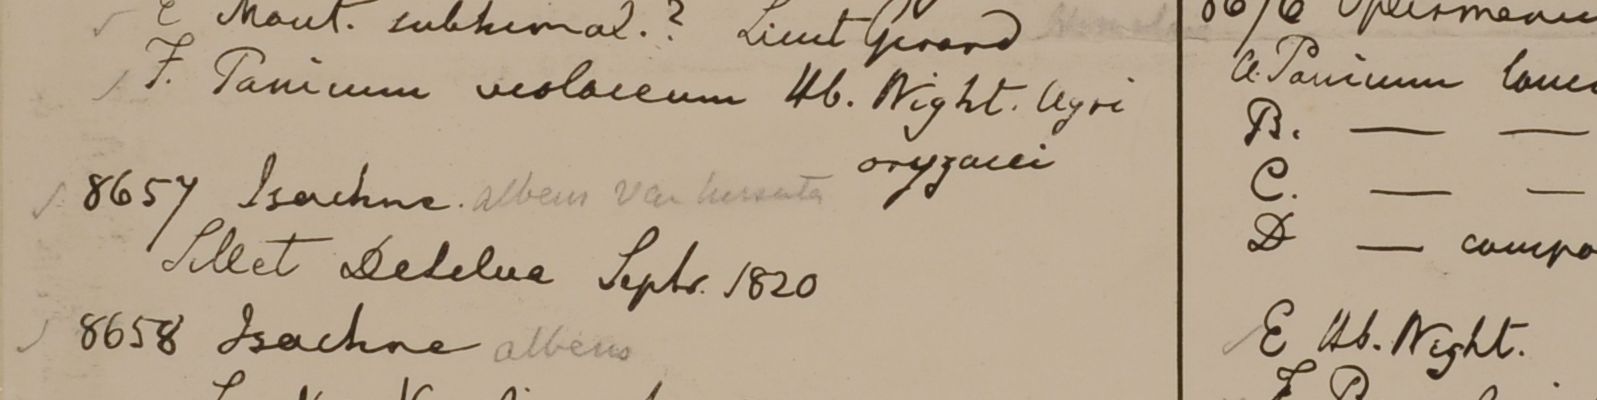 E Mont. subhimal.? Lieut Gerard
F. Panicum violaceum Hb. Wight. Agri
oryzacei
8657 Isachne. albens Var hirsuta
Sillet Desilva Septr. 1820
8658 Isachne albens
8676 Oplismenus
A. Panicum lance
B. — —
C. — —
D — compo
E Hb. Wight.